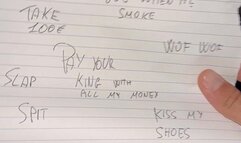 YOU WHEN HE
TAKE
100€
SMOKE
WOF WOF
PAY YOUR
KING WITH
ALL MY MONEY
SLAP
SPIT
KISS MY
SHOES